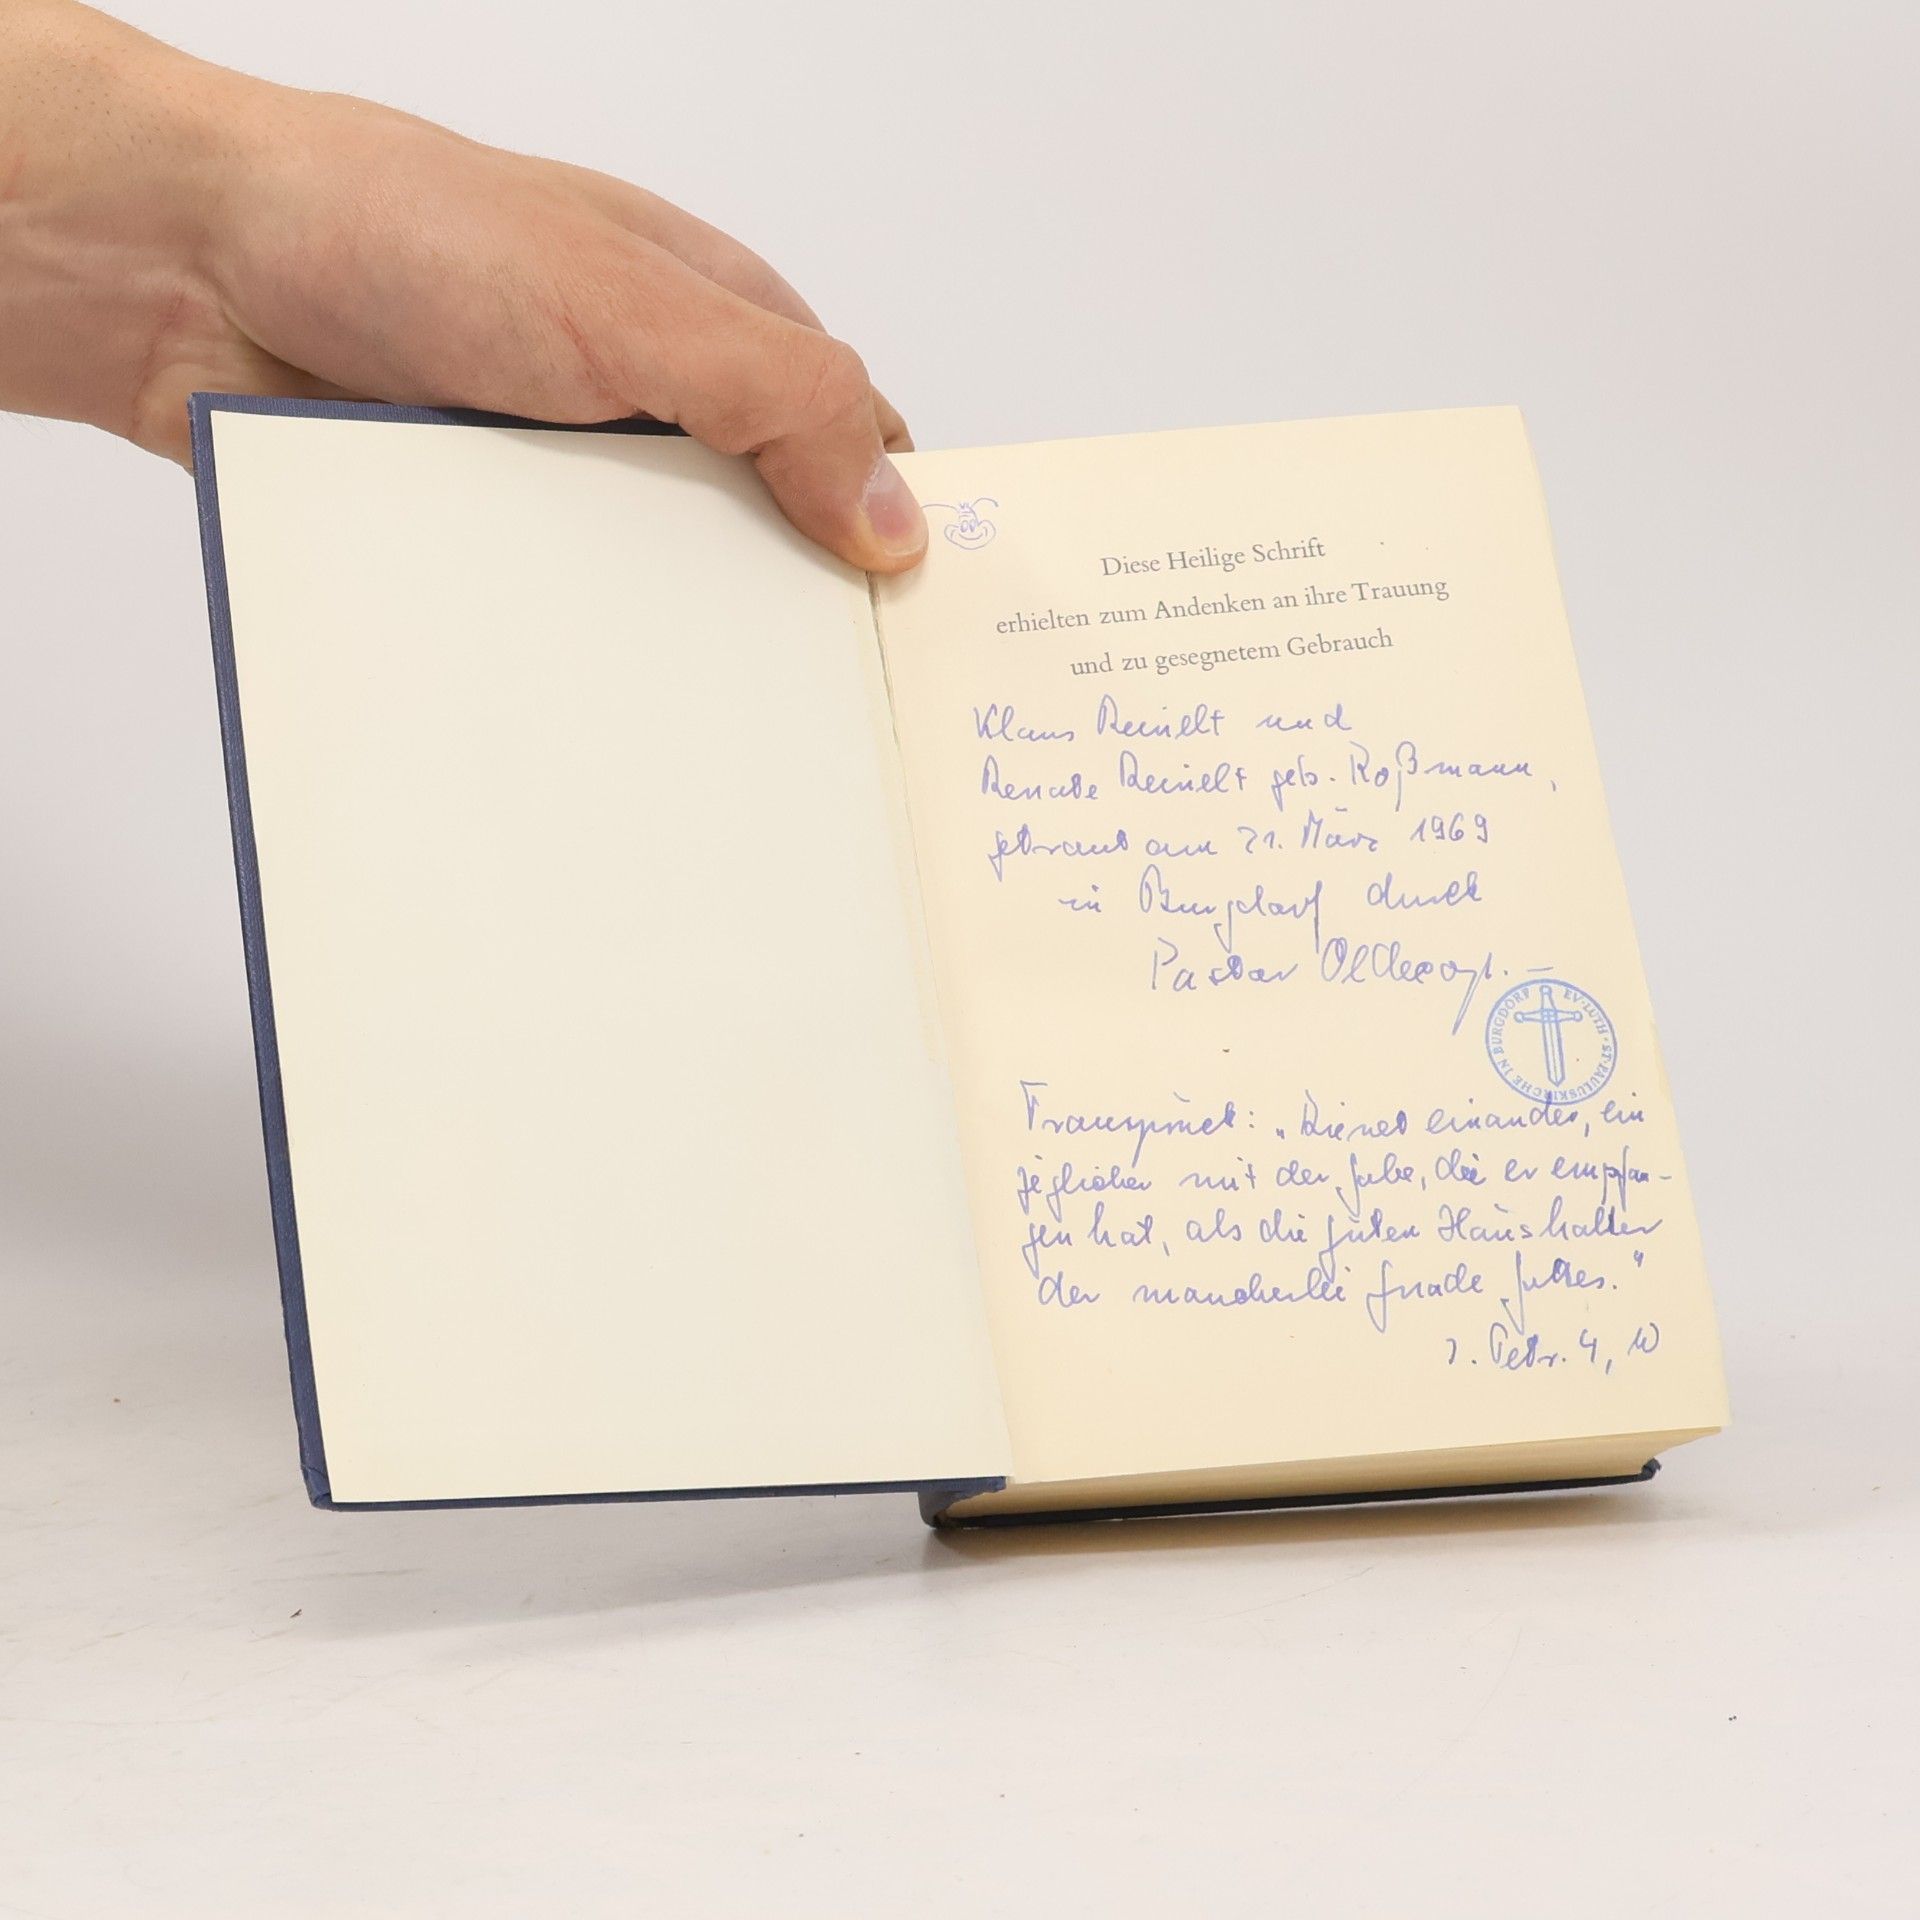 Diese Heilige Schrift
erhielten zum Andenken an ihre Trauung
und zu gesegnetem Gebrauch
Klaus Reinelt und
Renate Reinelt geb. Roßmann,
getraut am 21. März 1969
in Burgdorf durch
Pastor Oldecop.
EV·LUTH·ST·PAULUSKIRCHE IN BURGDORF
Trauspruch: „Dienet einander, ein
jeglicher mit der Gabe, die er empfan-
gen hat, als die guten Haushalter
der mancherlei Gnade Gottes."
1. Petr. 4, 10